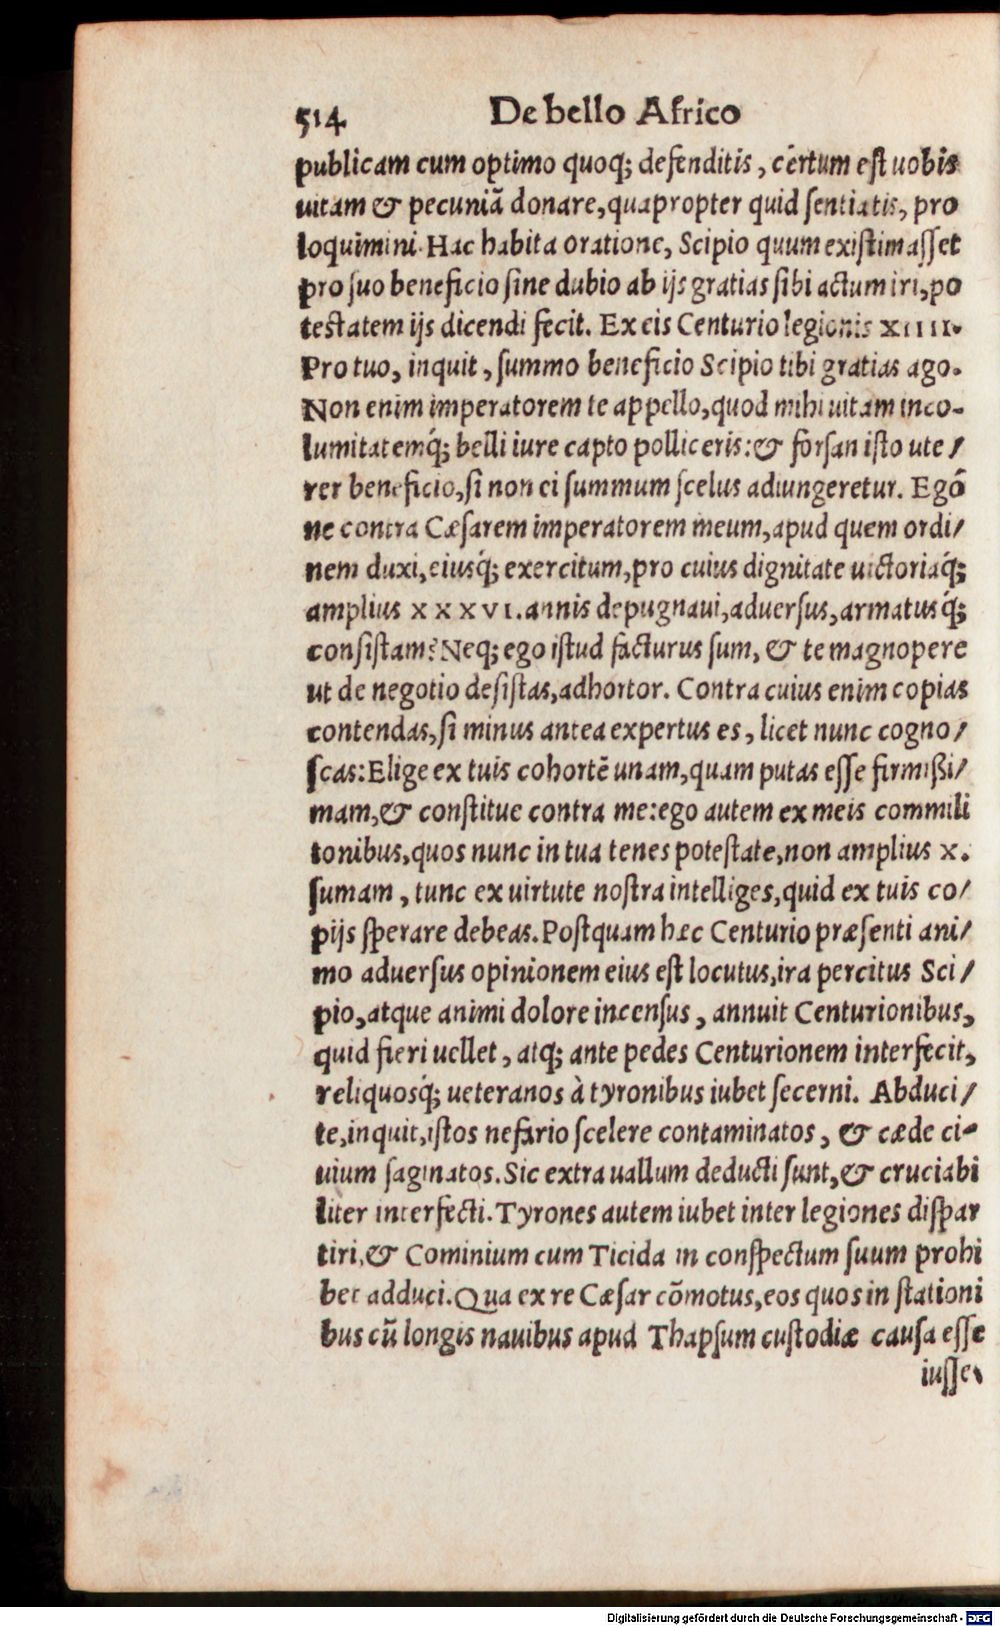 514 De bello Africo
publicam cum optimo quoq; defenditis, certum est uobis
uitam & pecuniã donare, quapropter quid sentiatis, pro
loquimini. Hac habita oratione, Scipio quum existimasset
pro suo beneficio sine dubio ab ijs gratias sibi actum iri, po
testatem ijs dicendi fecit. Ex eis Centurio legionis XIIII.
Pro tuo, inquit, summo beneficio Scipio tibi gratias ago.
Non enim imperatorem te appello, quod mihi uitam inco-
lumitatemq́; belli iure capto polliceris: & forsan isto ute/
rer beneficio, si non ei summum scelus adiungeretur. Egõ
ne contra Cæsarem imperatorem meum, apud quem ordi/
nem duxi, eiusq́; exercitum, pro cuius dignitate uictoriaq́;
amplius XXXVI. annis depugnaui, aduersus, armatusq́;
consistam? Neq; ego istud facturus sum, & te magnopere
ut de negotio desistas, adhortor. Contra cuius enim copias
contendas, si minus antea expertus es, licet nunc cogno/
scas: Elige ex tuis cohortẽ unam, quam putas esse firmißi/
mam, & constitue contra me: ego autem ex meis commili
tonibus, quos nunc in tua tenes potestate, non amplius X.
sumam, tunc ex uirtute nostra intelliges, quid ex tuis co/
pijs sperare debeas. Postquam hæc Centurio præsenti ani/
mo aduersus opinionem eius est locutus, ira percitus Sci/
pio, atque animi dolore incensus, annuit Centurionibus,
quid fieri uellet, atq; ante pedes Centurionem interfecit,
reliquosq́; ueteranos à tyronibus iubet secerni. Abduci/
te, inquit, istos nefario scelere contaminatos, & cæde ci-
uium saginatos. Sic extra uallum deducti sunt, & cruciabi
liter interfecti. Tyrones autem iubet inter legiones dispar
tiri, & Cominium cum Ticida in conspectum suum prohi
bet adduci. Qua ex re Cæsar cõmotus, eos quos in stationi
bus cũ longis nauibus apud Thapsum custodiæ causa esse
iusse,
Digitalisierung gefördert durch die Deutsche Forschungsgemeinschaft - DFG